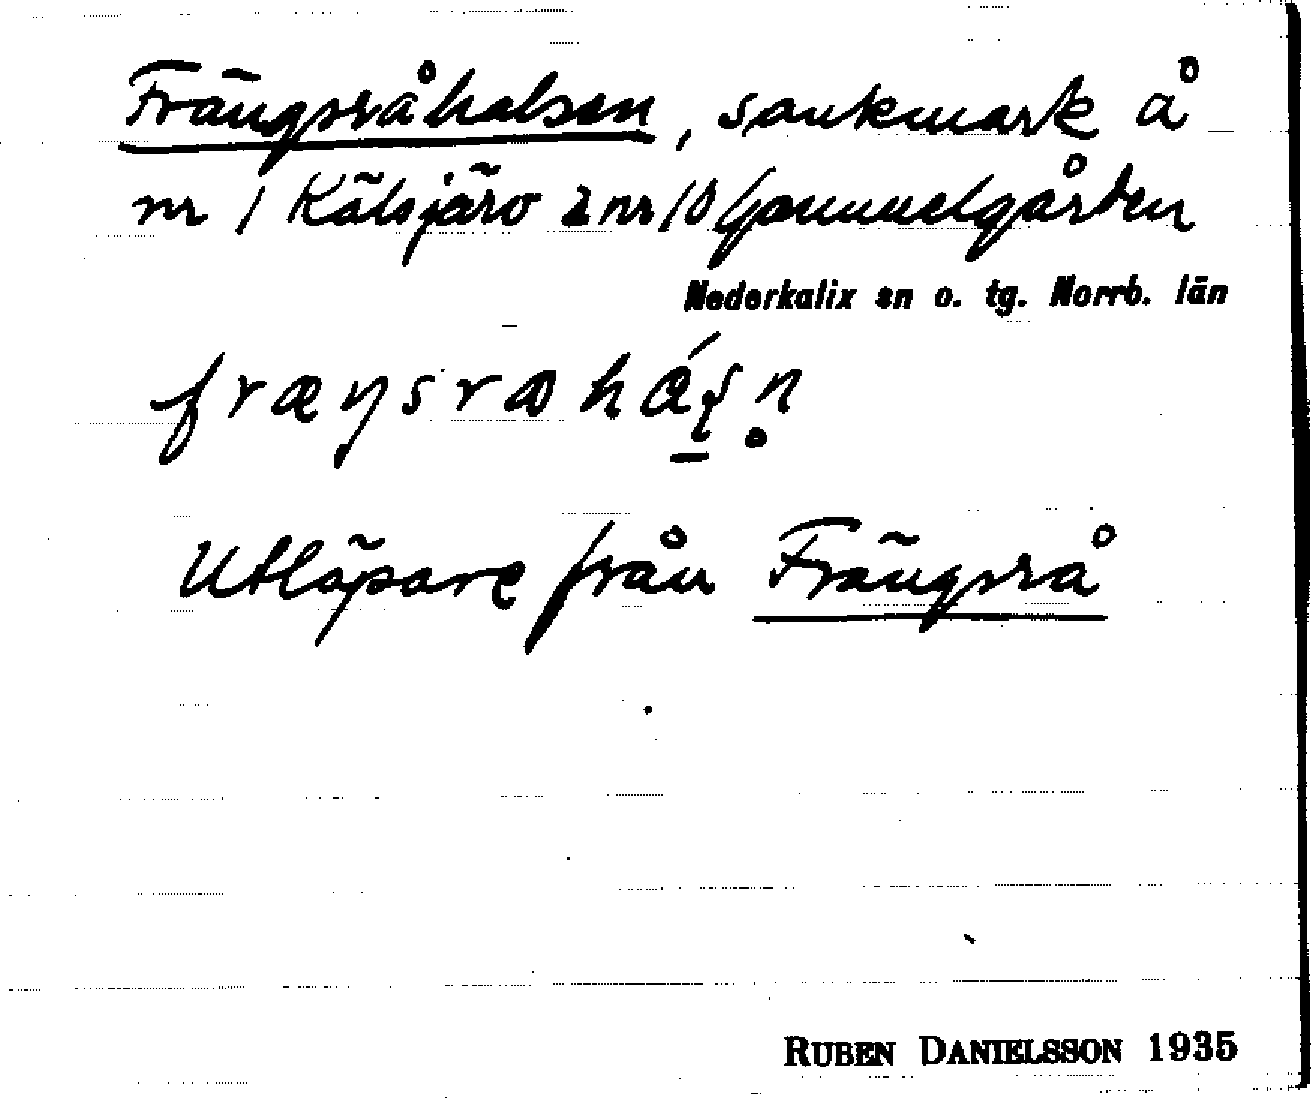 Frängsråhalsen, sankmark å
nr 1 Kälsjärv 2 nr 10 Gammelgården
Nederkalix sn o. tg. Norrb. län
Utlöpare från Frängsrå
RUBEN DANIELSSON 1935